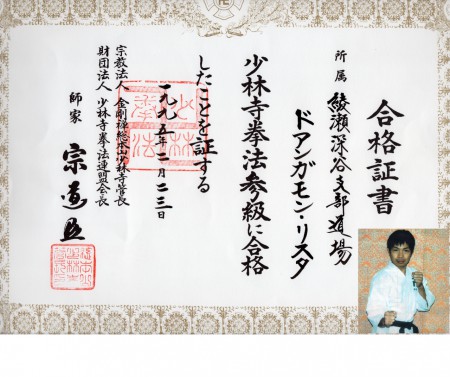 合格証書
所属 綾瀬深谷支部道場
ドアンガモン・リスタ
少林寺拳法参級に合格
したことを証する
一九九五年二月二三日
宗教法人 金剛禅総本山少林寺管長
財団法人 少林寺拳法連盟会長
師家 宗道臣